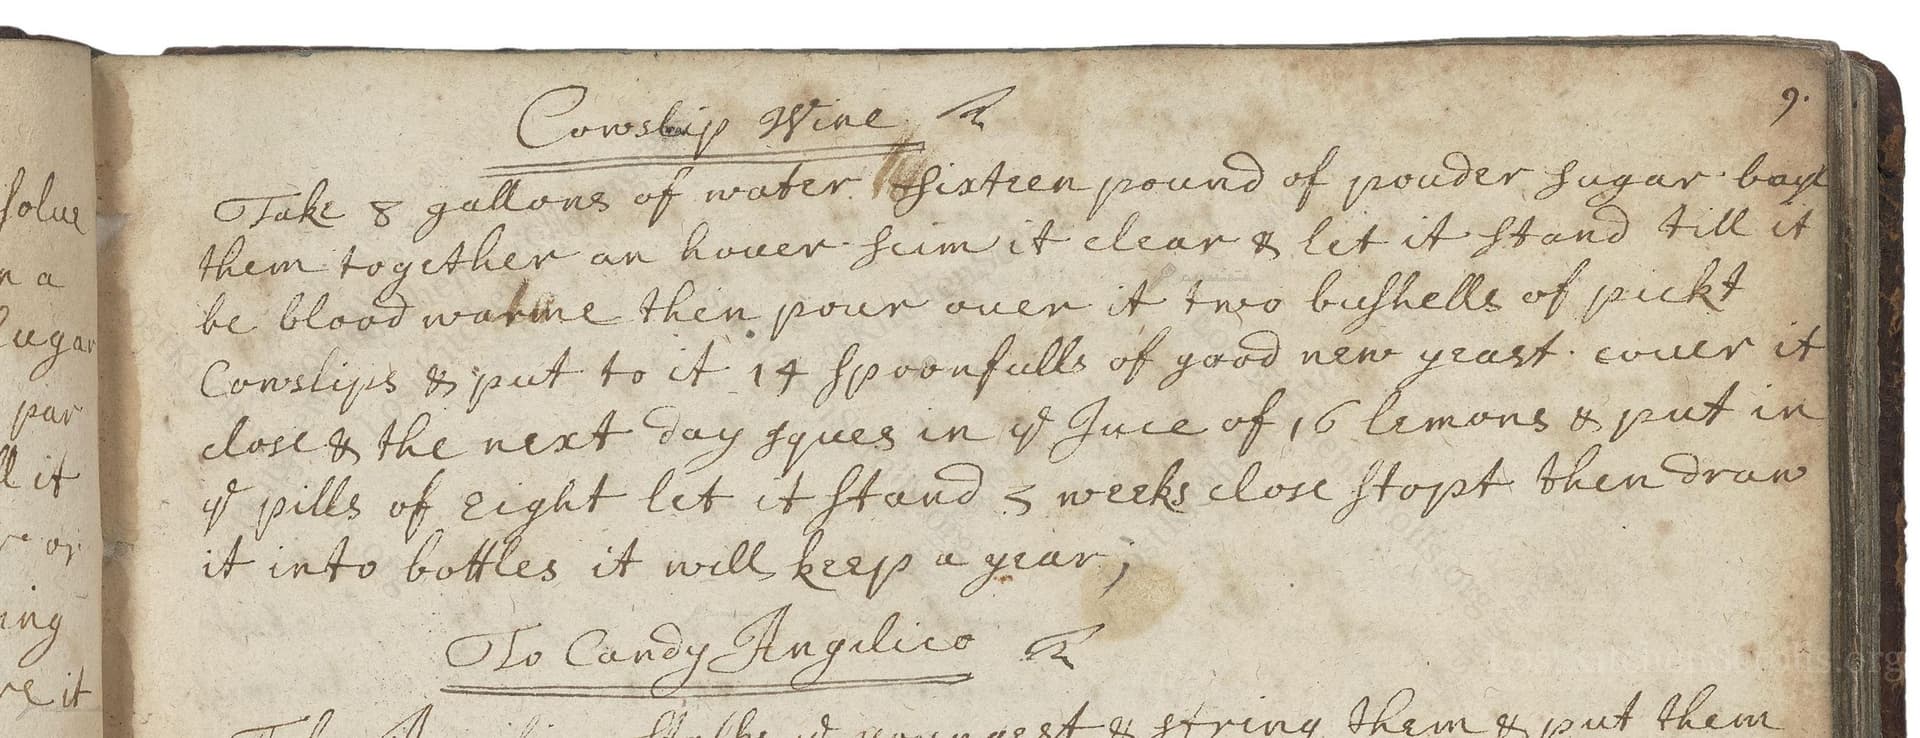 9.
Cowslip Wine
Take 8 gallons of water sixteen pound of pouder sugar boyl
them together an houer scim it clear & let it stand till it
be blood warme then pour over it two bushells of pickt
Cowslips & put to it 14 spoonfulls of good new yeast. couer it
close & the next day sques in ye Juce of 16 lemons & put in
ye pills of eight let it stand 3 weeks close stopt then draw
it into bottles it will keep a year;
To Candy Angilico
stalks ye youngest & string them & put them
solue
n a
sugar
par
ll it
or
ing
re it